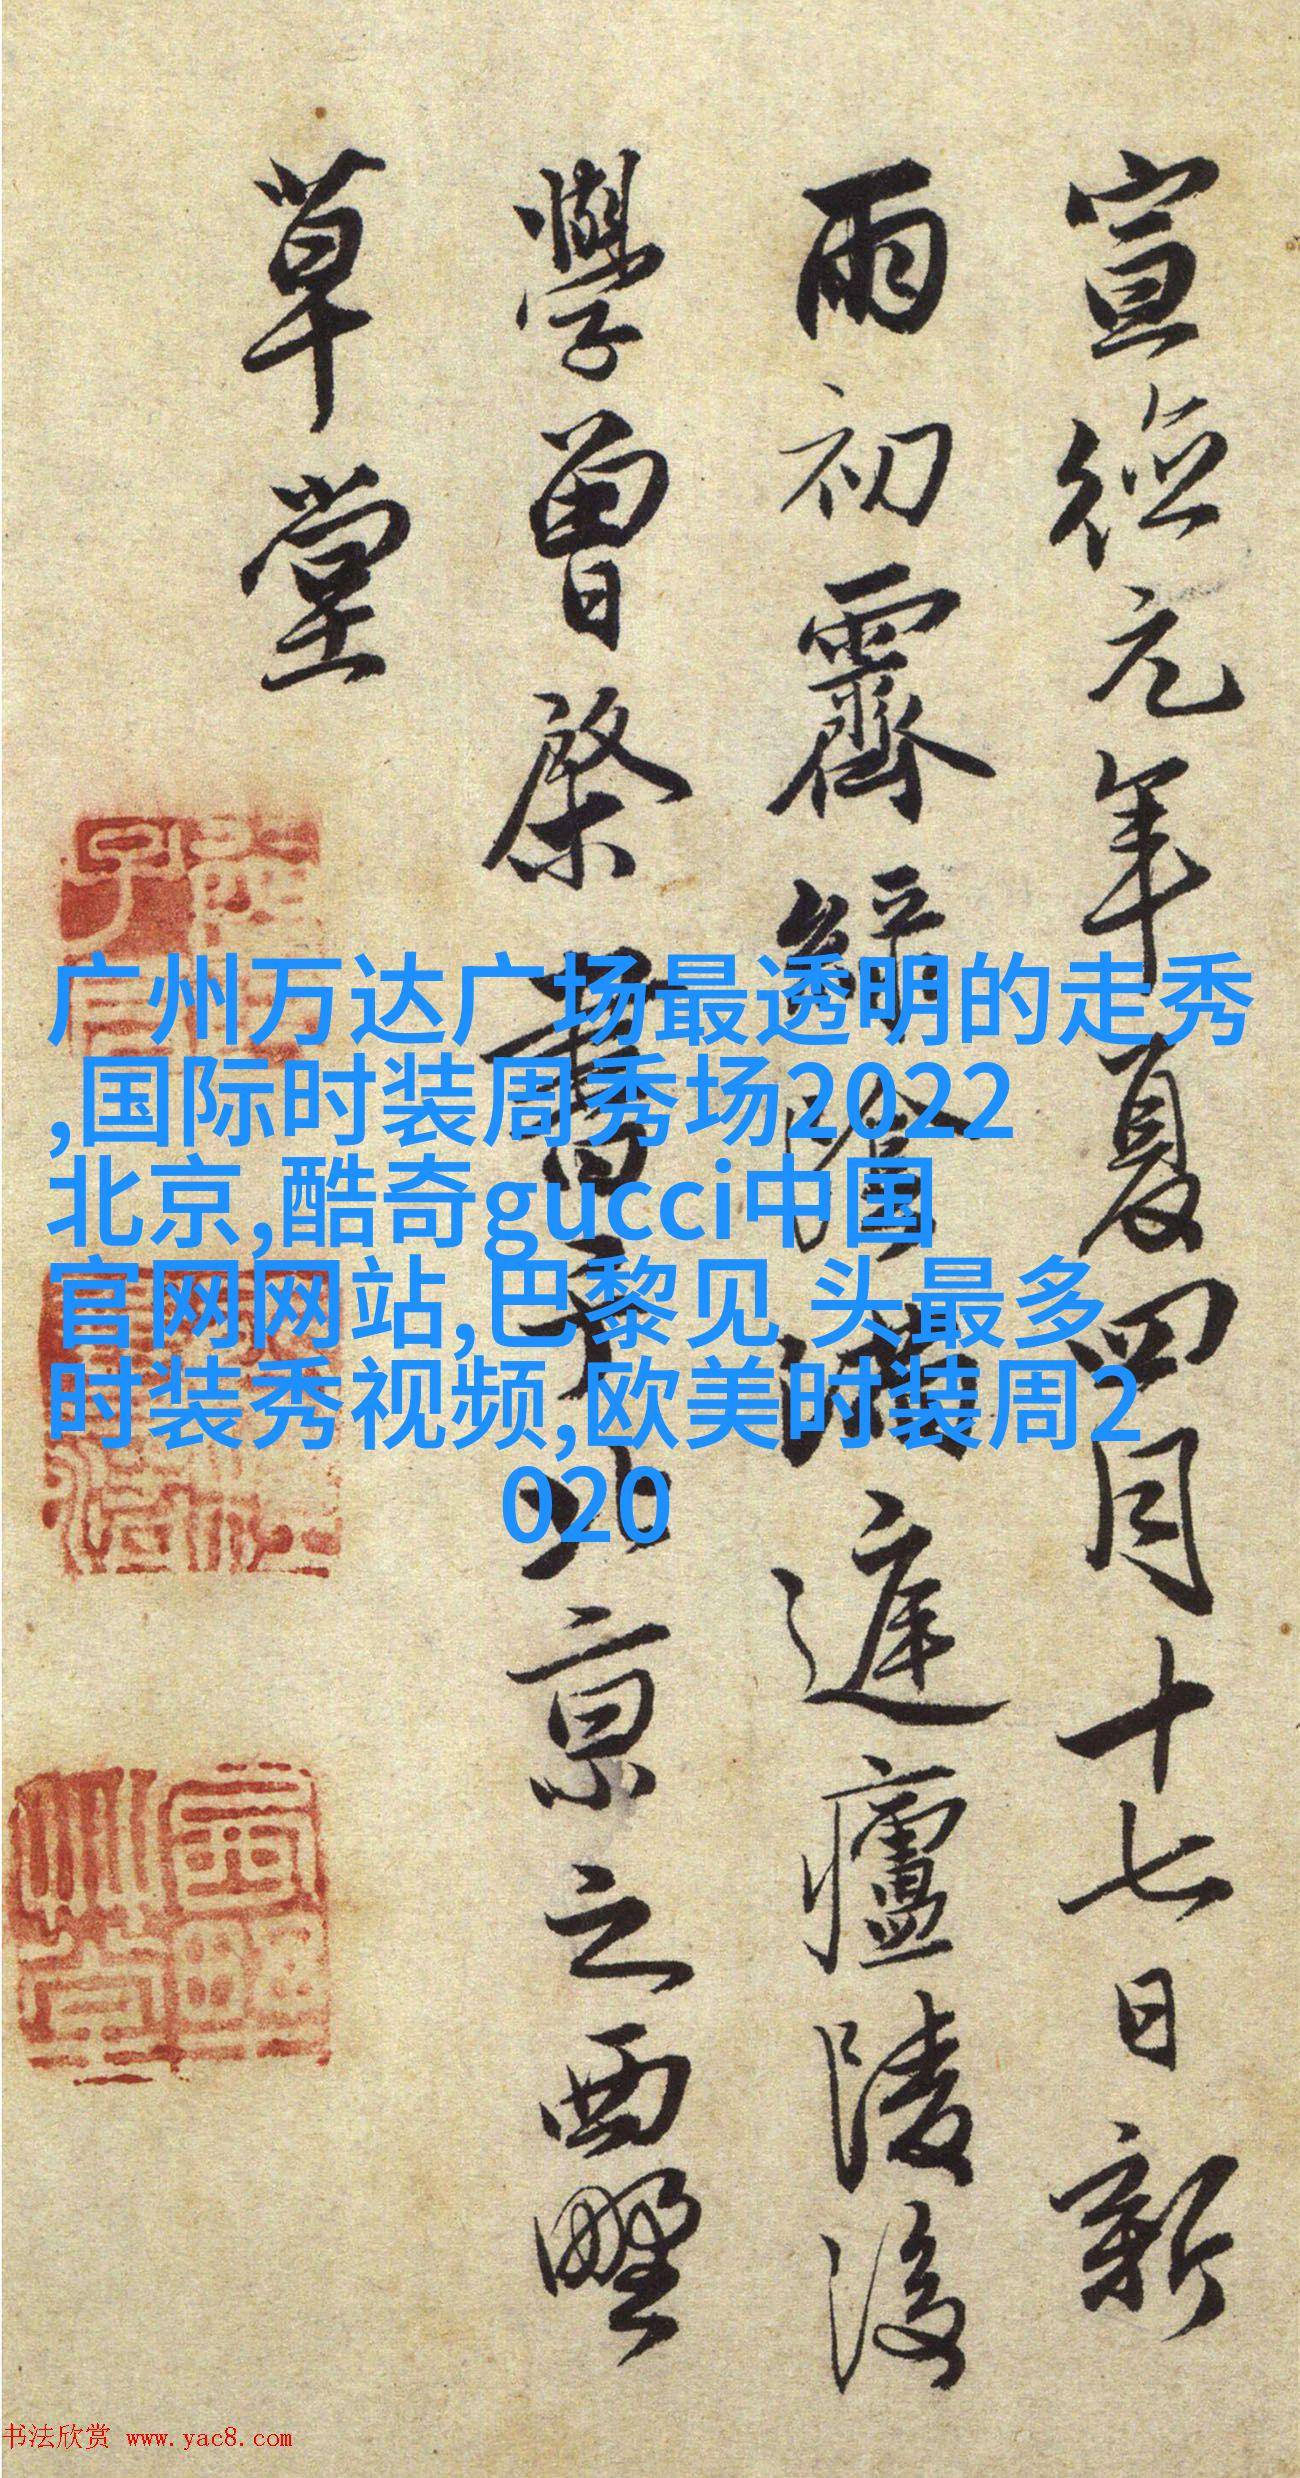 宣德元年夏四月十七日新
雨初霽陰滿庭廬陵後
學曾棨書于北京之西墅
草堂
广州万达广场最透明的走秀
,国际时装周秀场2022
北京,酷奇gucci中国
官网网站,巴黎见 头最多
时装秀视频,欧美时装周2
020
书法欣赏 www.yac8.com